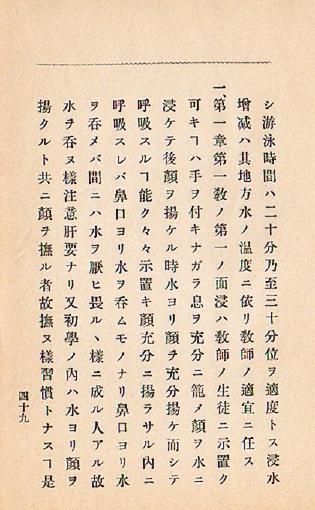 シ游泳時間ハ二十分乃至三十分位ヲ適度トス浸水
增减ハ其地方水ノ温度ニ依リ教師ノ適宜ニ任ス
一、第一章第一敎ノ第一ノ面浸ハ敎師ノ生徒ニ示置ク
可キヿハ手ヲ付キナガラ息ヲ充分ニ籠メ顏ヲ水ニ
浸ケテ後顏ヲ揚ケル時水ヨリ顏ヲ充分揚ケ而シテ
呼吸スルヿ能ク々々示置キ顏充分ニ揚ラサル内ニ
呼吸スレバ鼻口ヨリ水ヲ呑ムモノナリ鼻口ヨリ水
ヲ呑メバ間ニハ水ヲ厭ヒ畏ルヽ樣ニ成ル人アル故
水ヲ呑ヌ樣注意肝要ナリ又初學ノ內ハ水ヨリ顏ヲ
揚クルト共ニ顏ヲ撫ル者故撫ヌ樣習慣トナスヿ是
四十九